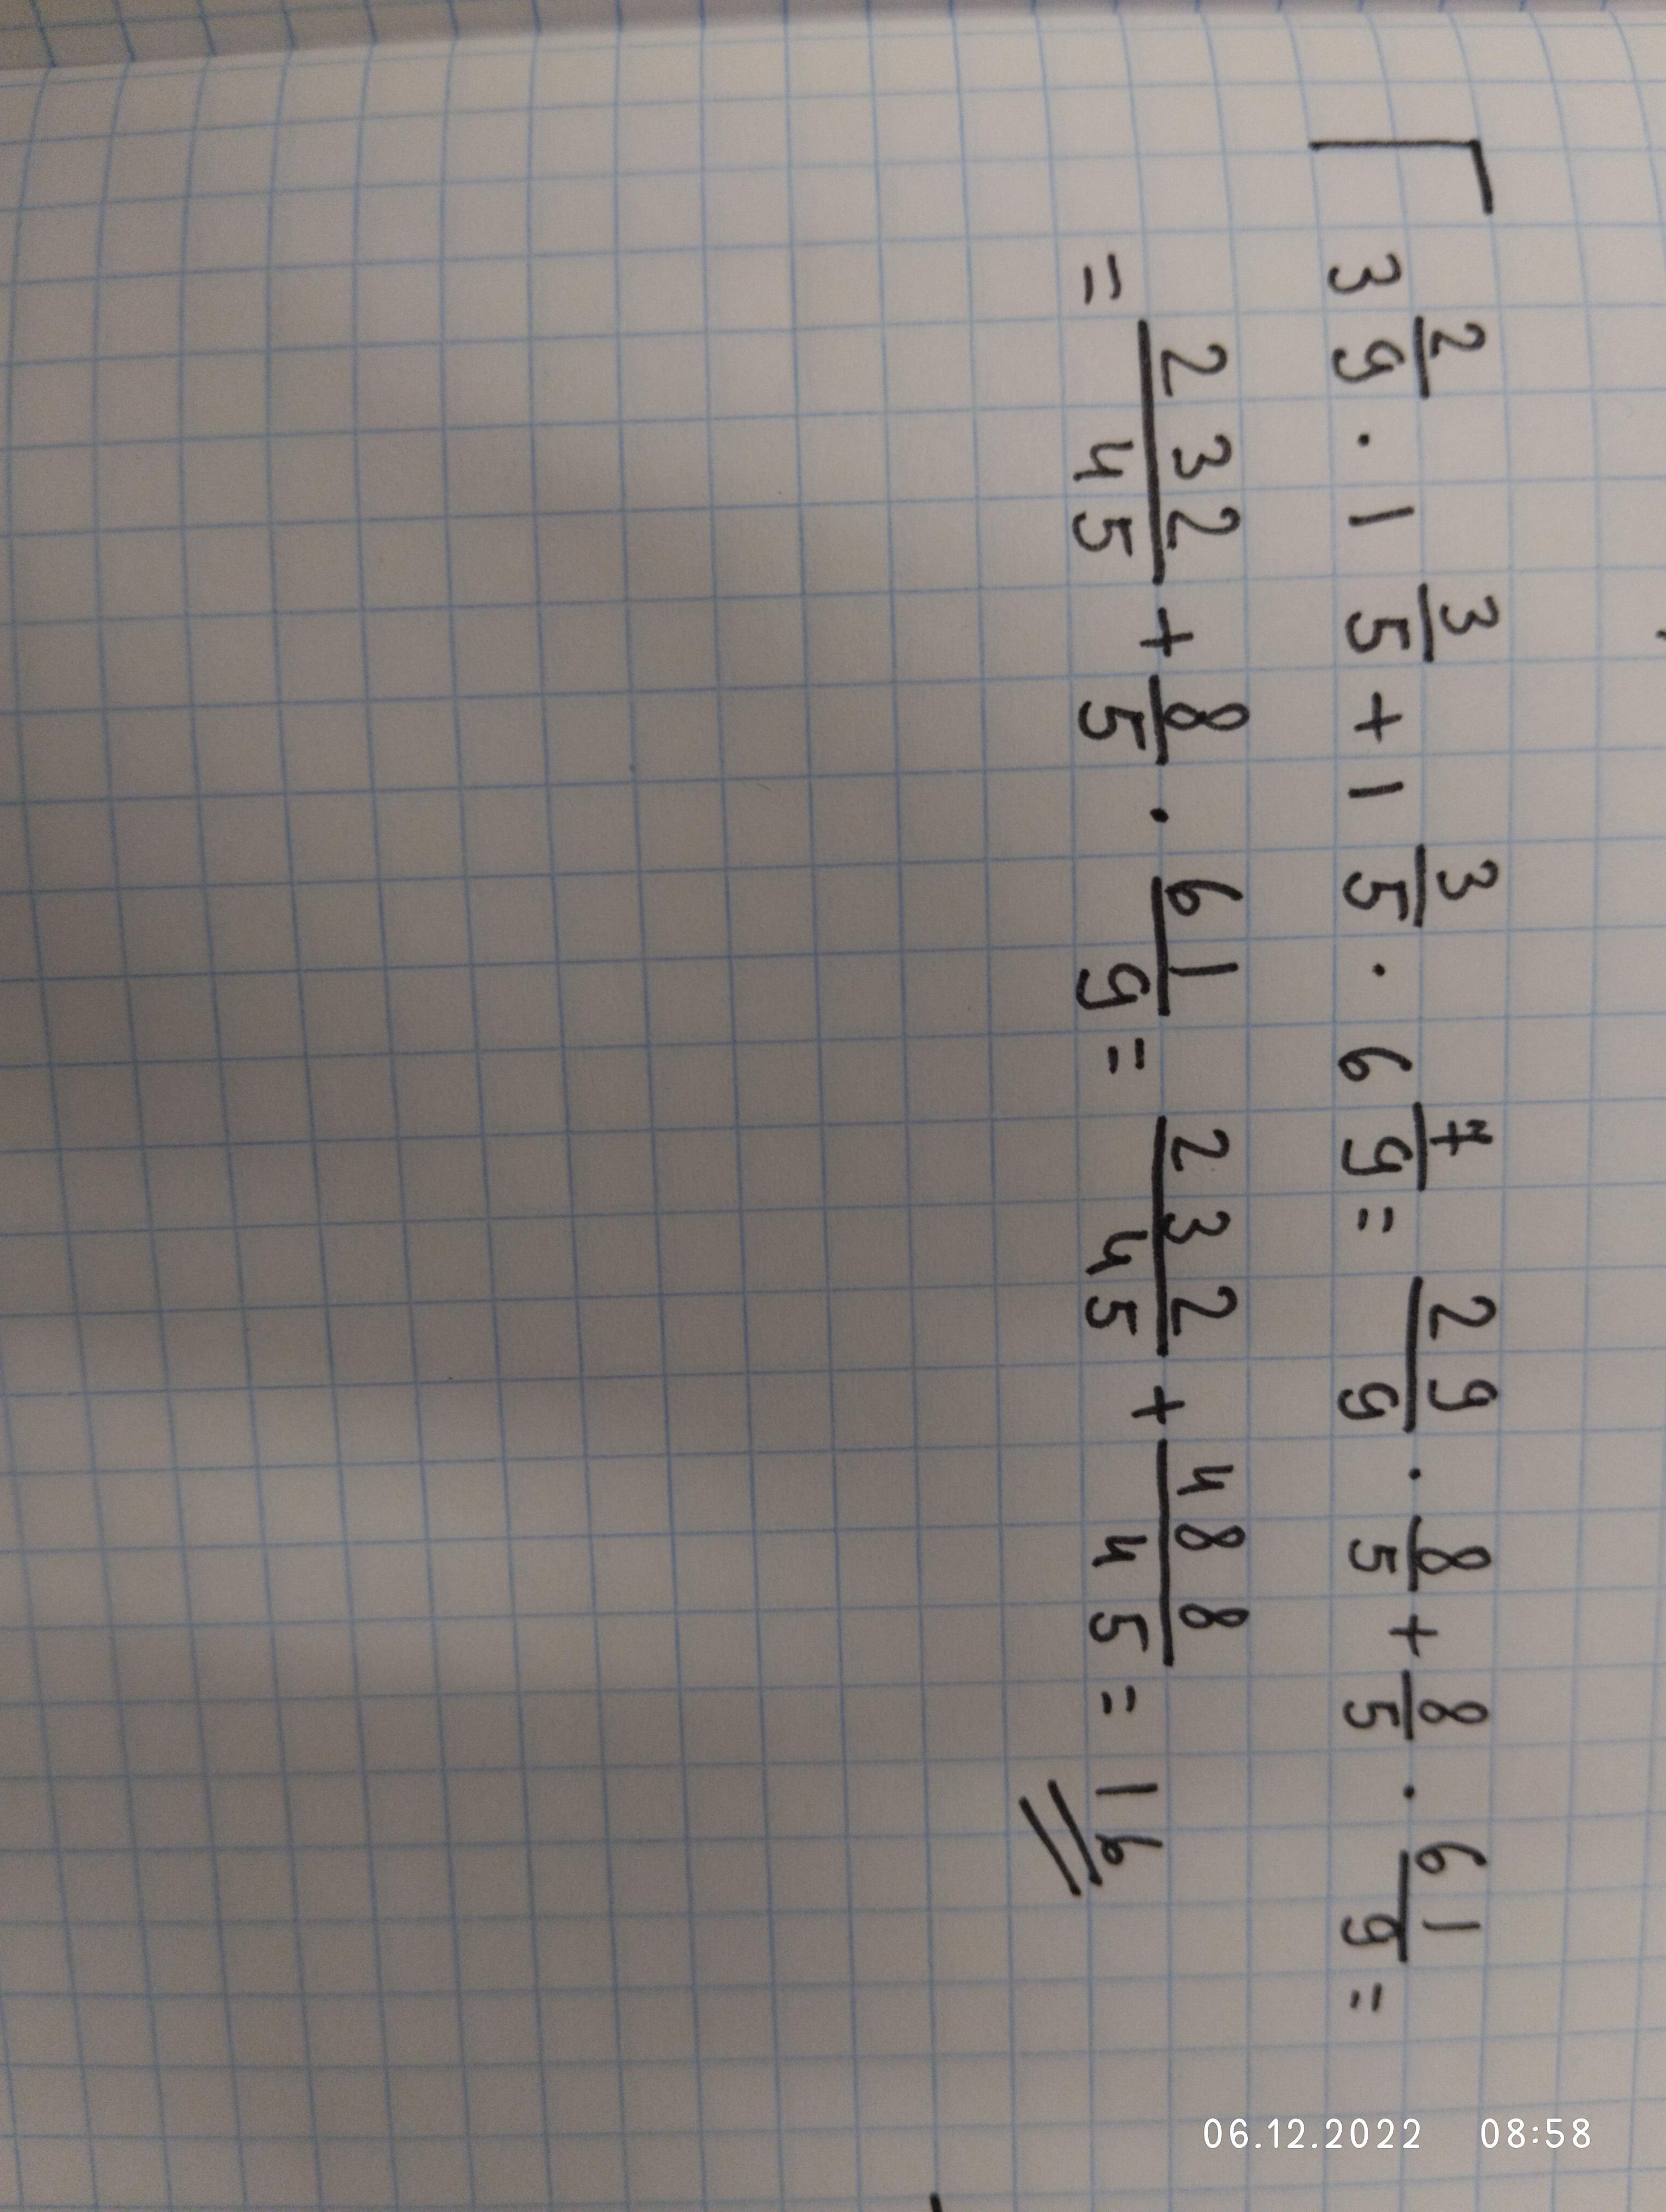 3 2/9 · 1 3/5 + 1 3/5 · 6 7/9 = 29/9 · 8/5 + 8/5 · 61/9 =
= 232/45 + 8/5 · 61/9 = 232/45 + 488/45 = 16
06.12.2022 08:58